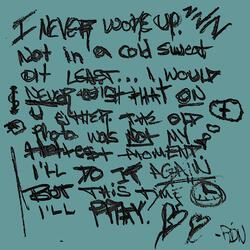 I NEVER WOKE UP.
NOT in a cold sweat
At LEAST... I WOULD
NEVER WISH THAT ON
THIS OLD
PHOTO WAS NOT MY
MOMENT
I'LL DO IT AGAIN
BUT THIS TIME
I'LL PRAY!